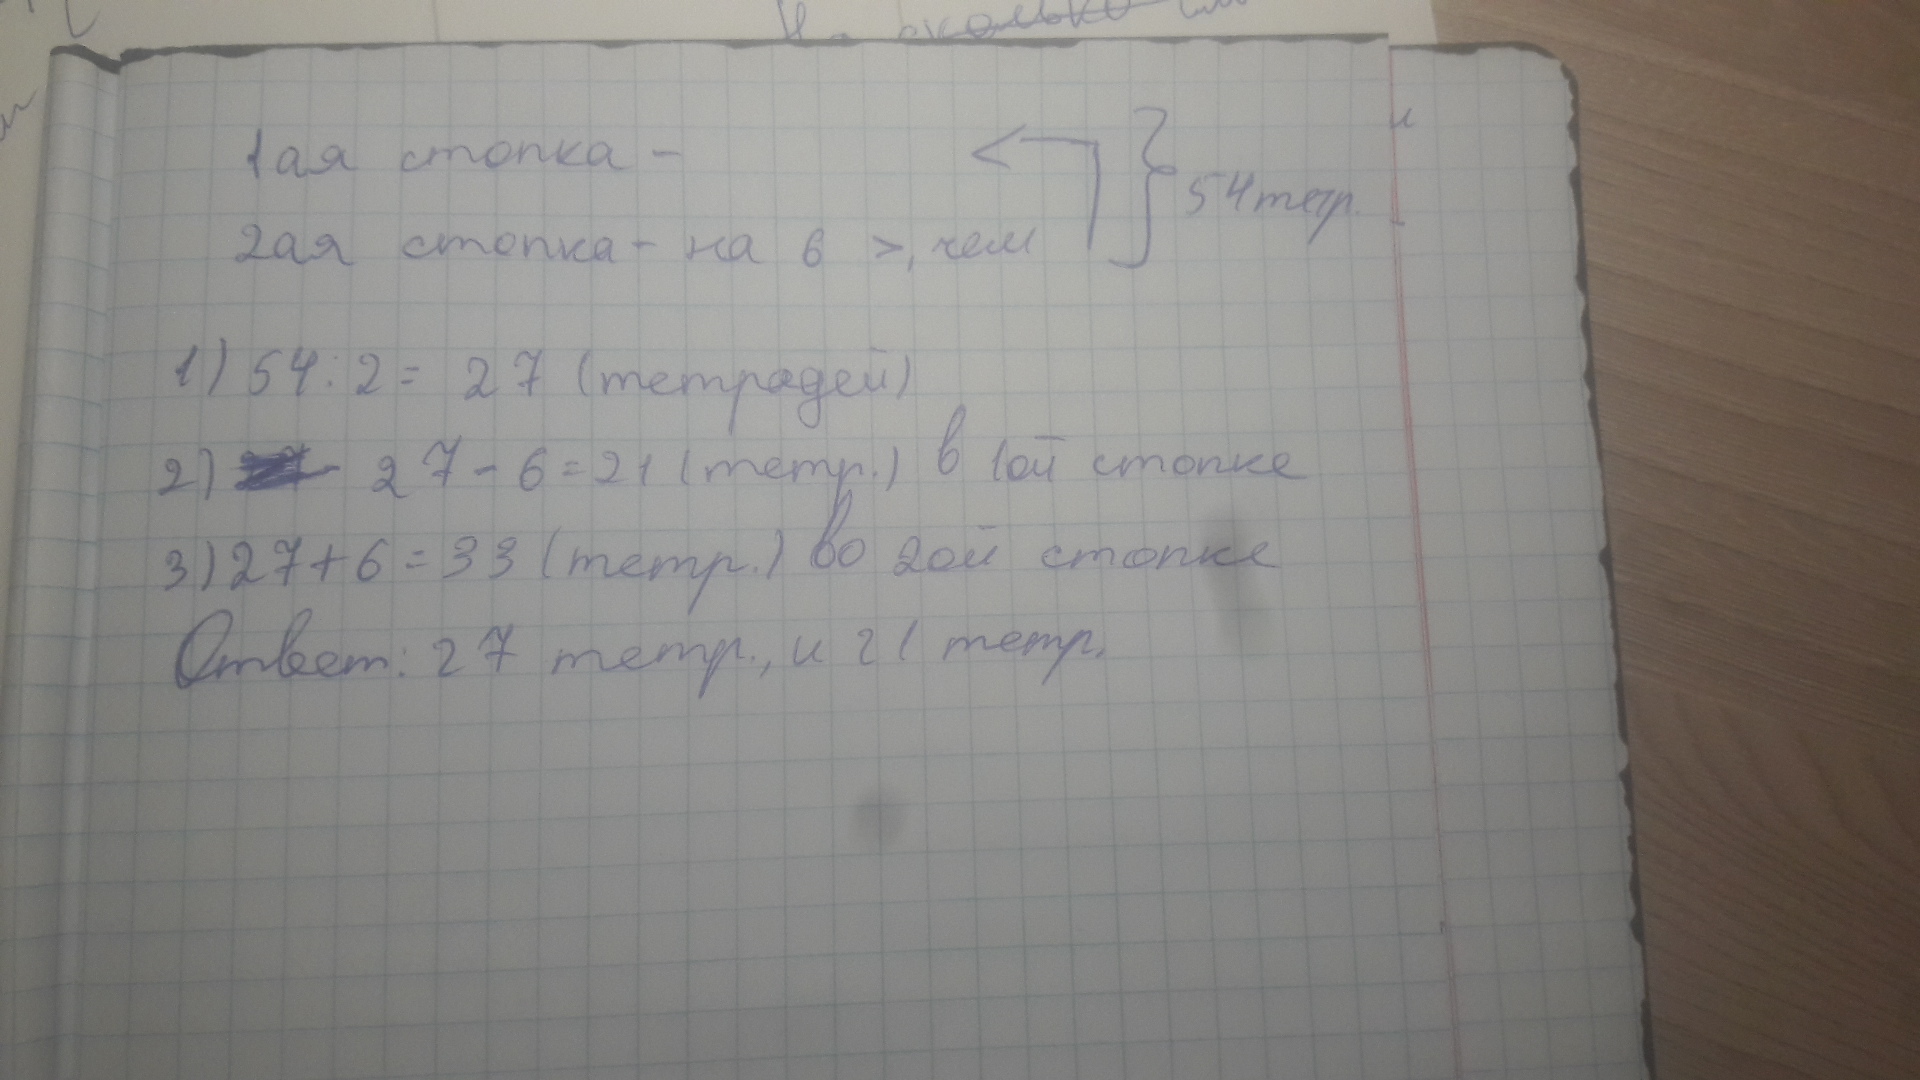 1ая стопка -
54 тетр.
2ая стопка - на 6 >, чем
1) 54 : 2 = 27 (тетрадей)
2) 27 - 6 = 21 (тетр.) в 1ой стопке
3) 27 + 6 = 33 (тетр.) во 2ой стопке
Ответ: 27 тетр., и 21 тетр.